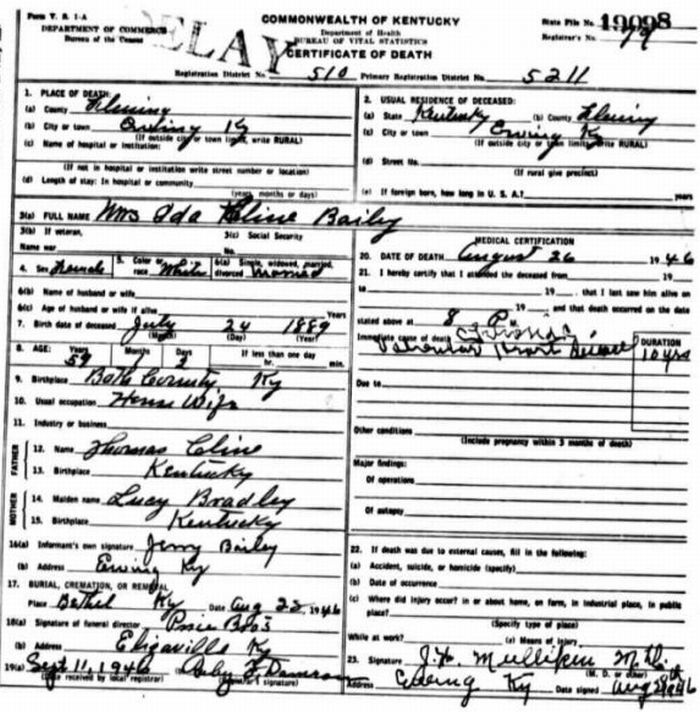 Form V. S. 1-A
DEPARTMENT OF COMMERCE
Bureau of the Census
DELAY
COMMONWEALTH OF KENTUCKY
Department of Health
BUREAU OF VITAL STATISTICS
CERTIFICATE OF DEATH
State File No. 19098
Registrar's No. 79
Registration District No. 510 Primary Registration District No. 5211
1. PLACE OF DEATH:
(a) County Fleming
(b) City or town Ewing Ky
(If outside city or town limits, write RURAL)
(c) Name of hospital or institution:
(If not in hospital or institution write street number or location)
(d) Length of stay: In hospital or community
(years, months or days)
2. USUAL RESIDENCE OF DECEASED:
(a) State Kentucky (b) County Fleming
(c) City or town Ewing Ky
(If outside city or town limits, write RURAL)
(d) Street No.
(If rural give precinct)
(e) If foreign born, how long in U. S. A.? years
3(a) FULL NAME Mrs Ida Cline Baily
3(b) If veteran, 3(c) Social Security
Name war No.
4. Sex Female 5. Color or race White 6(a) Single, widowed, married, divorced Married
6(b) Name of husband or wife
6(c) Age of husband or wife if alive Years
7. Birth date of deceased July 24 1889
(Month) (Day) (Year)
8. AGE: Years Months Days If less than one day
59 2 hr. min.
9. Birthplace Bath County Ky
10. Usual occupation House Wife
11. Industry or business
FATHER
12. Name Thomas Cline
13. Birthplace Kentucky
MOTHER
14. Maiden name Lucy Bradley
15. Birthplace Kentucky
16(a) Informant's own signature Jerry Bailey
(b) Address Ewing Ky
17. BURIAL, CREMATION, OR REMOVAL
Place Bethel Ky Date Aug 28, 1946
18(a) Signature of funeral director Bros
(b) Address Elizaville Ky
19(a) Sept 11, 1946
(Date received by local registrar) (Registrar's signature)
MEDICAL CERTIFICATION
20. DATE OF DEATH August 26 1946
21. I hereby certify that I attended the deceased from 19
to 19 , that I last saw him alive on
19 and that death occurred on the date
stated above at 8 P M.
Immediate cause of death Chronic
Valvular Heart Disease
DURATION
10 yrs
Due to
Other conditions
(Include pregnancy within 3 months of death)
Major findings:
Of operations
Of autopsy
22. If death was due to external causes, fill in the following:
(a) Accident, suicide, or homicide (specify)
(b) Date of occurrence
(c) Where did injury occur? in or about home, on farm, in industrial place, in public
place?
(Specify type of place)
While at work? (e) Means of injury
23. Signature J. H. Mullikin M. D.
(M. D. or other)
Address Ewing Ky Date signed Aug 28th 1946